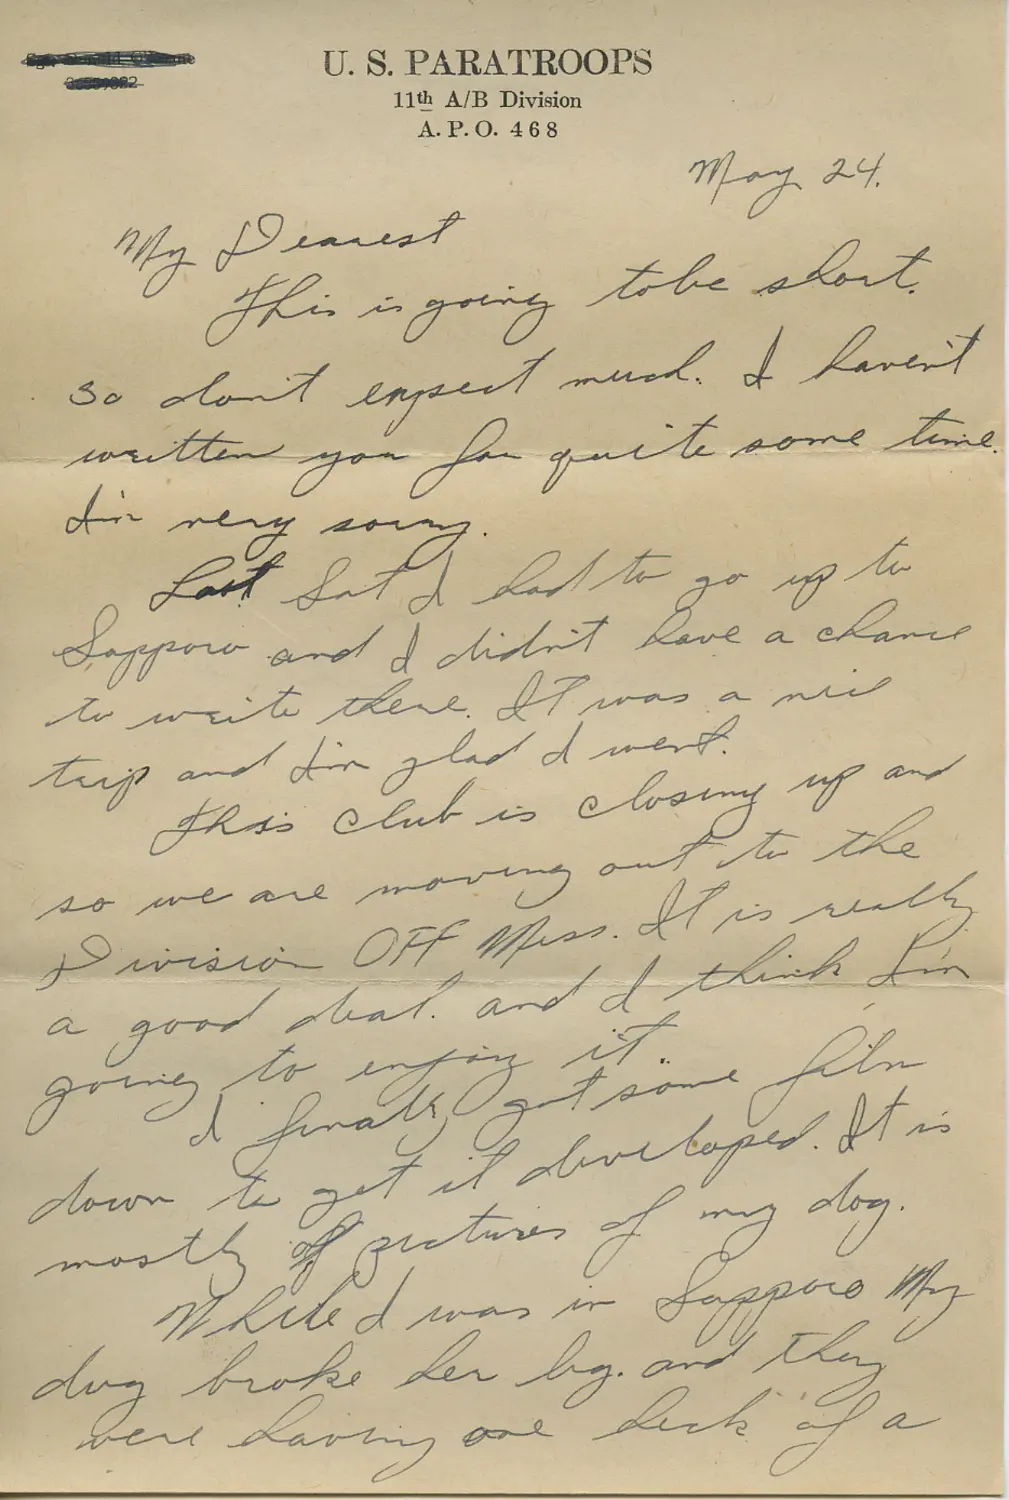 U. S. PARATROOPS
11th A/B Division
A. P. O. 468
May 24.
My Dearest
This is going tobe short.
so don't expect much. I haven't
written you for quite some time.
I'm very sorry.
Last Sat I had to go up to
Sapporo and I didn't have a chance
to write there. It was a nice
trip and I'm glad I went.
This club is closing up and
so we are moving out to the
Division OFF Mess. It is really
a good deal. and I think I'm
going to enjoy it.
I finally got some film
down to get it developed. It is
mostly of pictures of my dog.
While I was in Sapporo My
dog broke her leg. and they
were having one heck of a